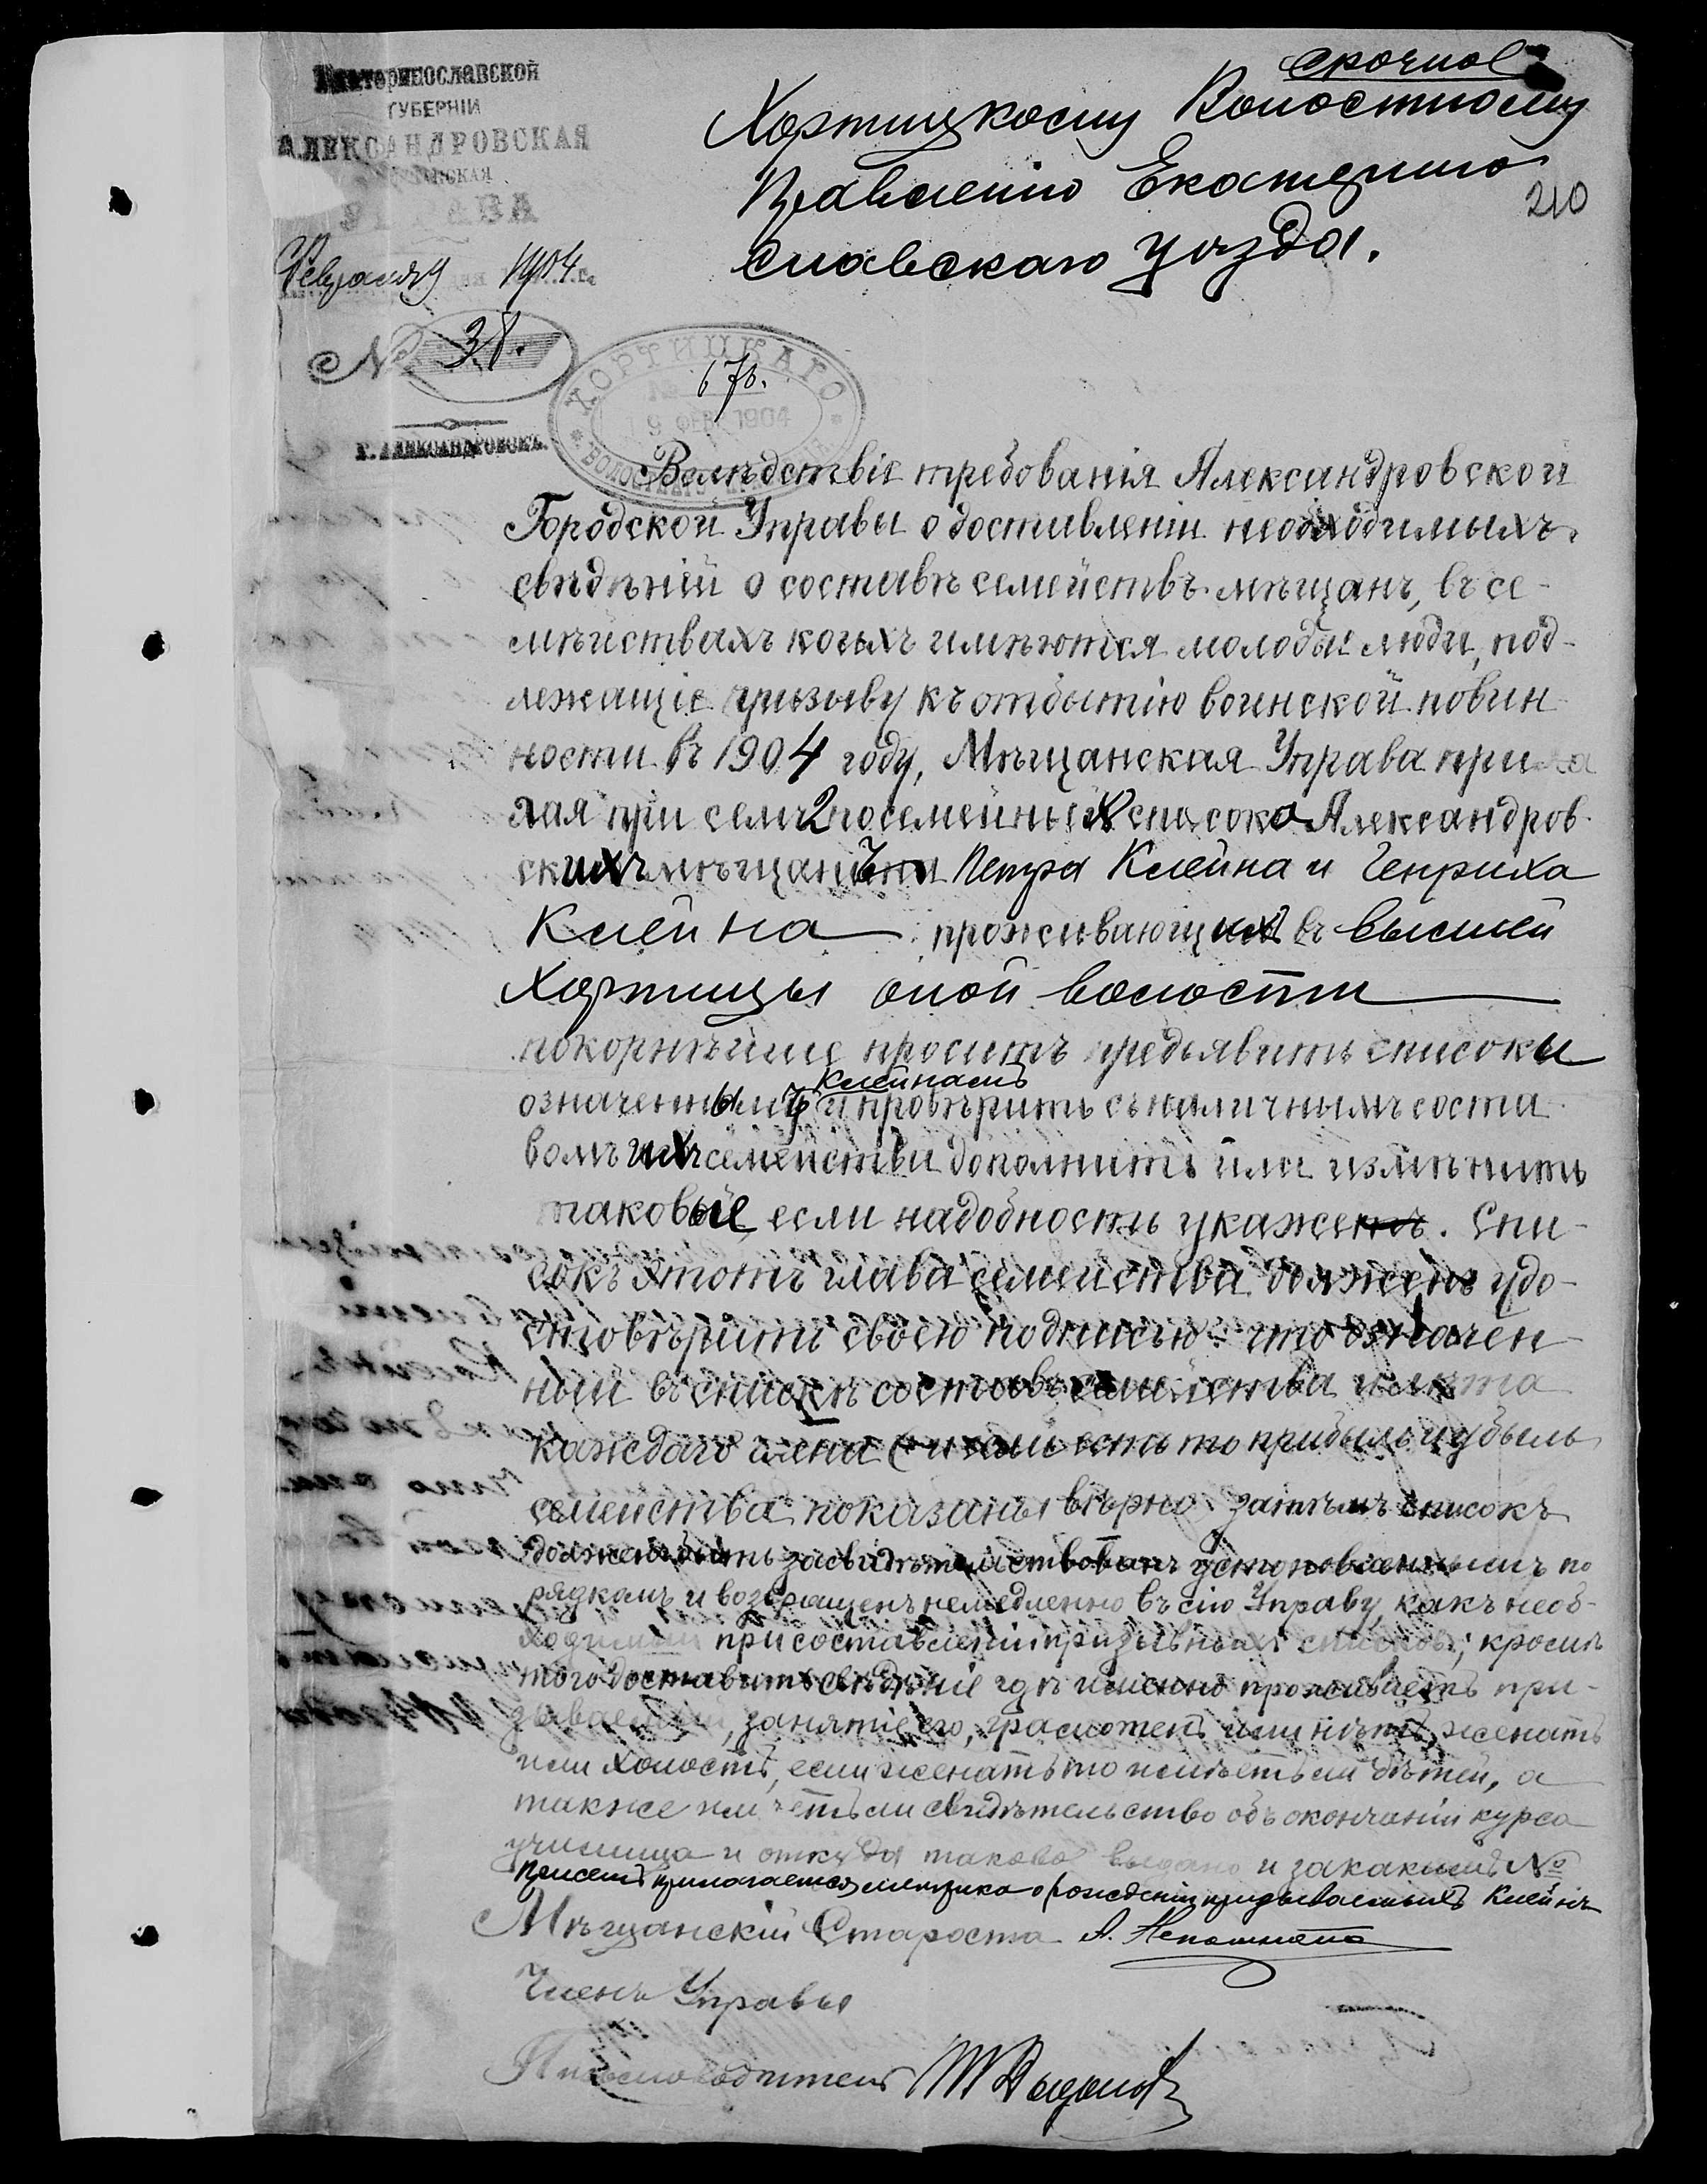 Екатеринославской
ГУБЕРНІИ
АЛЕКСАНДРОВСКАЯ
УПРАВА
Февраля 9 дня 1904 г.
№ 38.
Г. АЛЕКСАНДРОВСКЪ.
срочное
Хортицкому Волостному
Правленію Екатерино
славскаго уѣзда.
210
ХОРТИЦКАГО
№ 676.
19 ФЕВ. 1904
ВОЛОСТНАГО
Вслѣдствіе требованія Александровской
Городской Управы о доставленіи необходимыхъ
свѣдѣній о составѣ семействъ мѣщанъ, въ се-
мѣйствахъ коихъ имѣются молодые люди, под-
лежащіе призыву къ отбытію воинской повин
ности въ 1904 году, Мѣщанская Управа прила
гая при семъ 2 посемейныхъ списока Александров-
скихъ мѣщанъ Петра Клейна и Генриха
Клейна проживающихъ въ высшей
Хортицы оной волости
покорнѣйше проситъ предъявить списоки
означеннымъ Клейнамъ и провѣрить съ наличнымъ соста
вомъ ихъ семейства и дополнить или измѣнить
таковые если надобность укажетъ. Спи-
сокъ этотъ глава семейства долженъ удо-
стовѣрить своею подписью: что означен
ный въ спискѣ составъ семейства и лѣта
каждаго члена (и коли есть то прибыль и убыль
семейства показаны вѣрно затѣмъ списокъ
долженъ быть засвидѣтельствованъ установленнымъ по
рядкомъ и возвращенъ немедленно въ сію Управу, какъ необ-
ходимый при составленіи призывныхъ списковъ; кромѣ
того доставить свѣдѣніе гдѣ именно проживаетъ при-
зываемый, занятіе его, грамотенъ или нѣтъ, женатъ
или холостъ, если женатъ то имѣетъ ли дѣтей, а
также имѣетъ ли свидѣтельство объ окончаніи курса
училища и откуда таково выдано и за какимъ №
При семъ прилагается метрика о рожденіи призываемыхъ Клейнъ
Мѣщанскій Староста
Членъ Управы
Письмоводитель